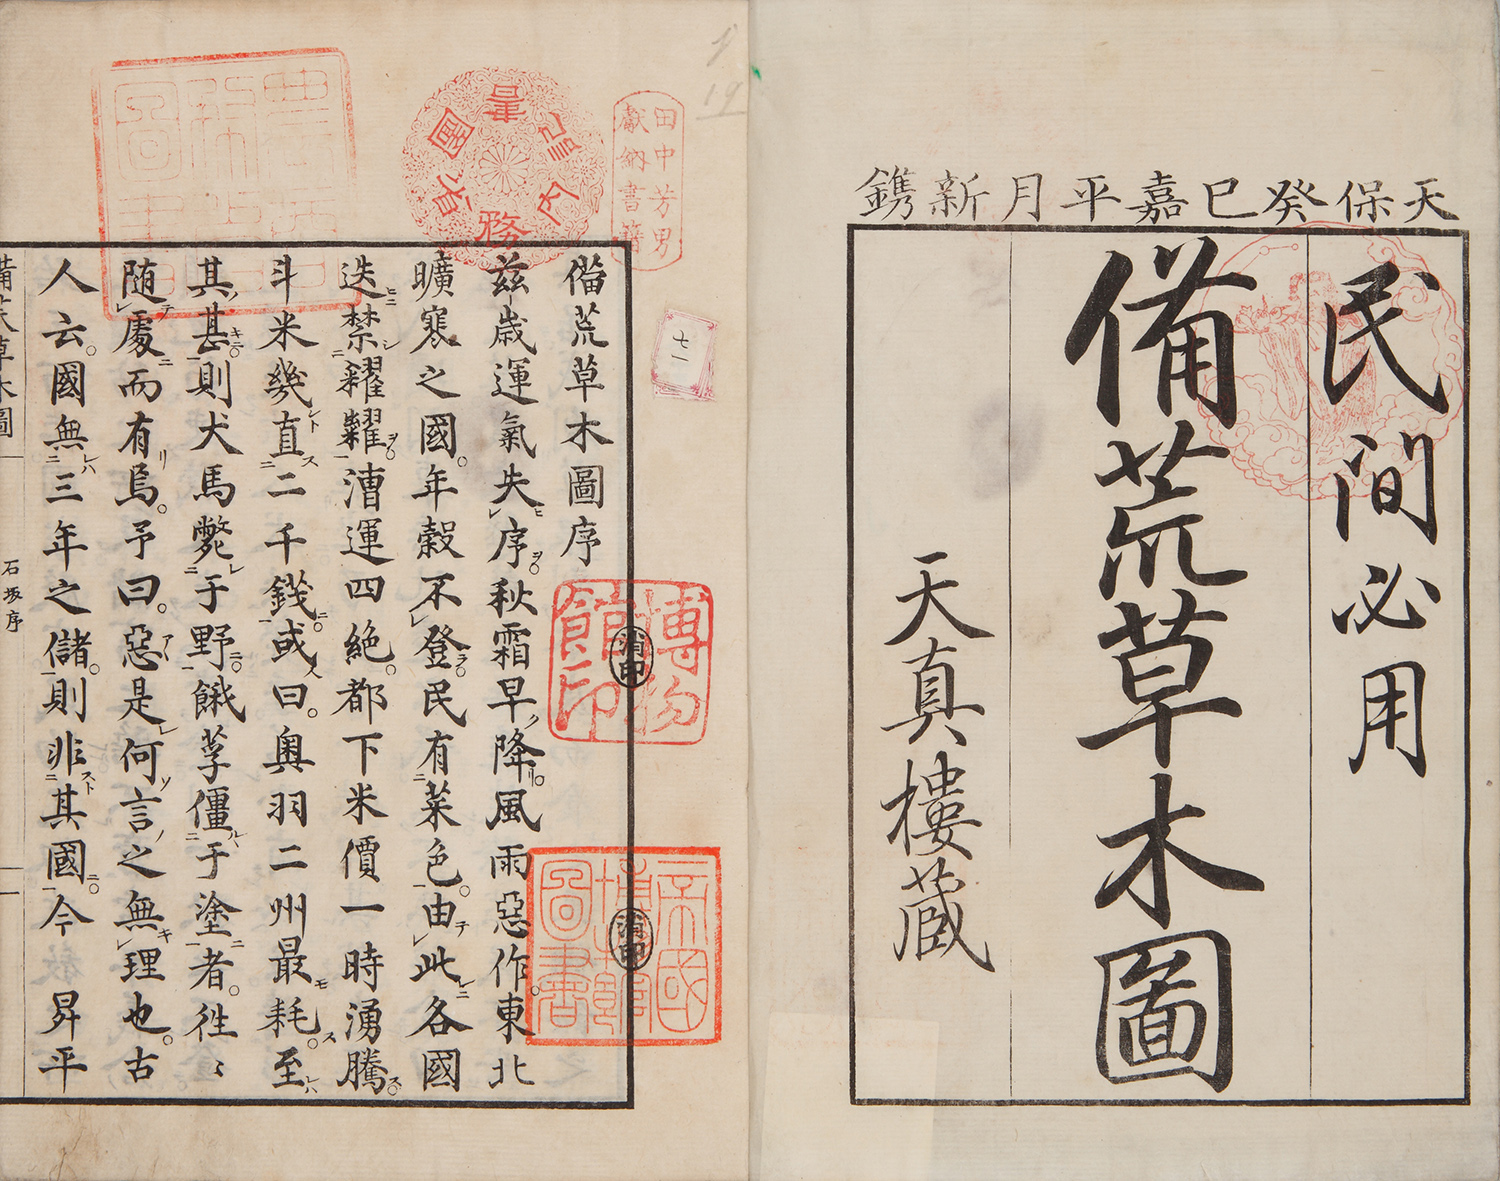 天保癸巳嘉平月新鐫
民間必用
備荒草木圖
天真樓蔵
田中芳男
獻納書籍
七一
博物
館印
消印
帝國
博物館
圖書
消印
備荒草木圖序
茲歳運氣失序秋霜早降風雨惡作東北
曠寒之國年穀不登民有菜色由此各國
迭禁糴糶漕運四絶都下米價一時湧騰
斗米幾直二千錢或曰奥羽二州最耗至
其甚則犬馬斃于野餓莩僵于塗者徃〻
随處而有焉予曰惡是何言之無理也古
人云國無三年之儲則非其國今昇平
備荒草木圖
石坂序
一